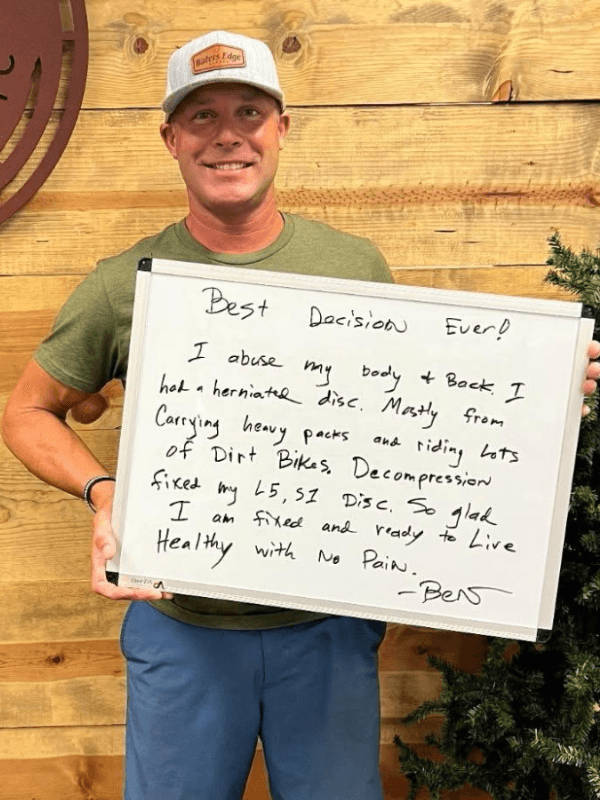 Waters Edge
Best Decision Ever!
I abuse my body & Back. I
had a herniated disc. Mostly from
Carrying heavy packs and riding Lots
of Dirt Bikes. Decompression
fixed my L5, S1 Disc. So glad
I am fixed and ready to Live
Healthy with No Pain.
- Ben